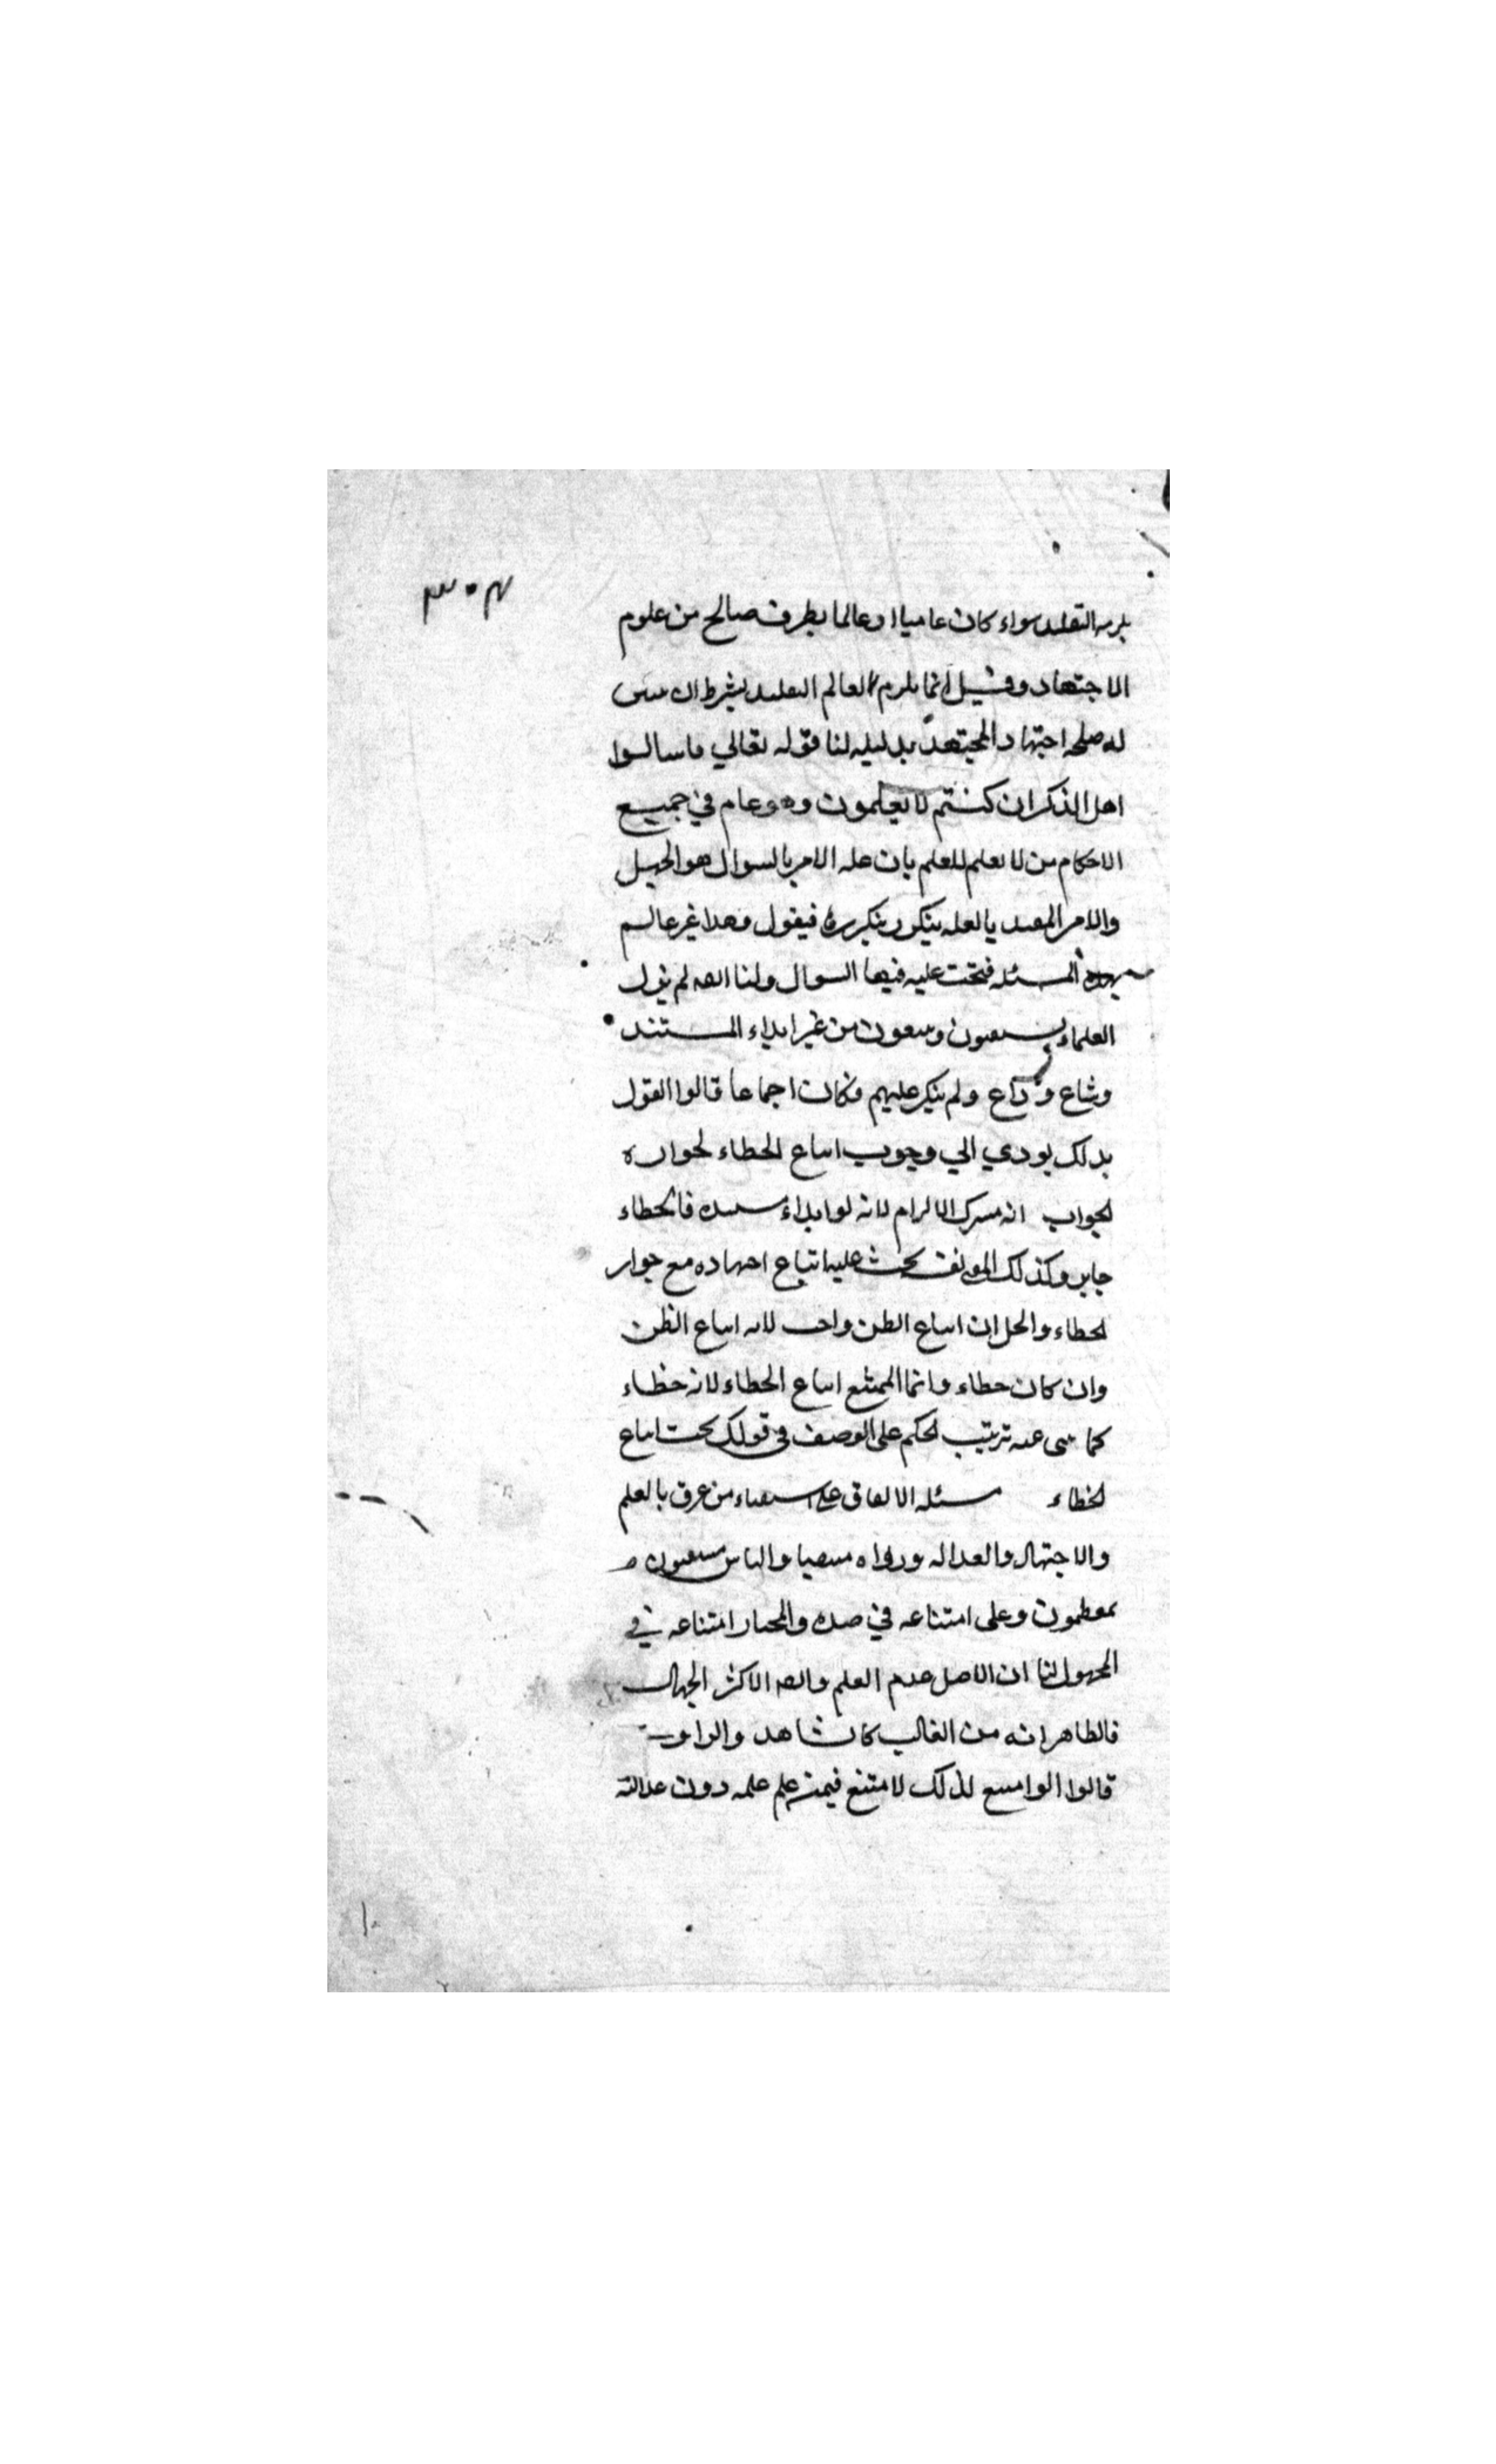 ٣٠٤
يلرمه التقليد سواء كان عاميا او عالما بطرف صالح من علوم
الاجتهاد وقيل انما يلرم العالم التقليد بشرط ان يتبين
له صلحه اجتهاد المجتهد بدليله لنا قوله تعالي فاسالوا
اهل الذكر ان كنتم لا يعلمون وهو عام في جميع
الاحكام من لا يعلم للعلم بان عله الامر بالسوال هو الجهل
والامر المقيد بالعله يتكرر بتكررها فيقول وهدا غير عالم
بهده المسئله فتحت عليه فيها السوال ولنا ايضا لم يزل
العلماء يستفتون ويتبعون من غير ابداء المستند
وشاع وذاع ولم ينكر عليهم فكان اجماعا قالوا القول
بدلك يودي الي وجوب اتباع الخطاء لجوازه
الجواب انه مشترك الالزام لانه لو ابداء مستنده فالخطاء
جايز وكذلك المفتي نفسه يجب عليه اتباع اجتهاده مع جواز
الخطاء والحل ان اتباع الظن واجب لانه اتباع الظن
وان كان خطاء وانما الممتنع اتباع الخطاء لانه خطاء
كما ينبى عنه ترتيب الحكم على الوصف في قولك يجب اتباع
الخطاء مسئله الاتفاق على استفتاء من عرف بالعلم
والاجتهاد والعداله وراه منتصبا والناس مستفتون
معظمون وعلى امتناعه في ضده والمختار امتناعه في
المجهول لنا ان الاصل عدم العلم وايضا الاكثر الجهال
فالظاهر انه من الغالب كالشاهد والراوي
قالوا لو امتنع لذلك لامتنع فيمن علم علمه دون عدالته